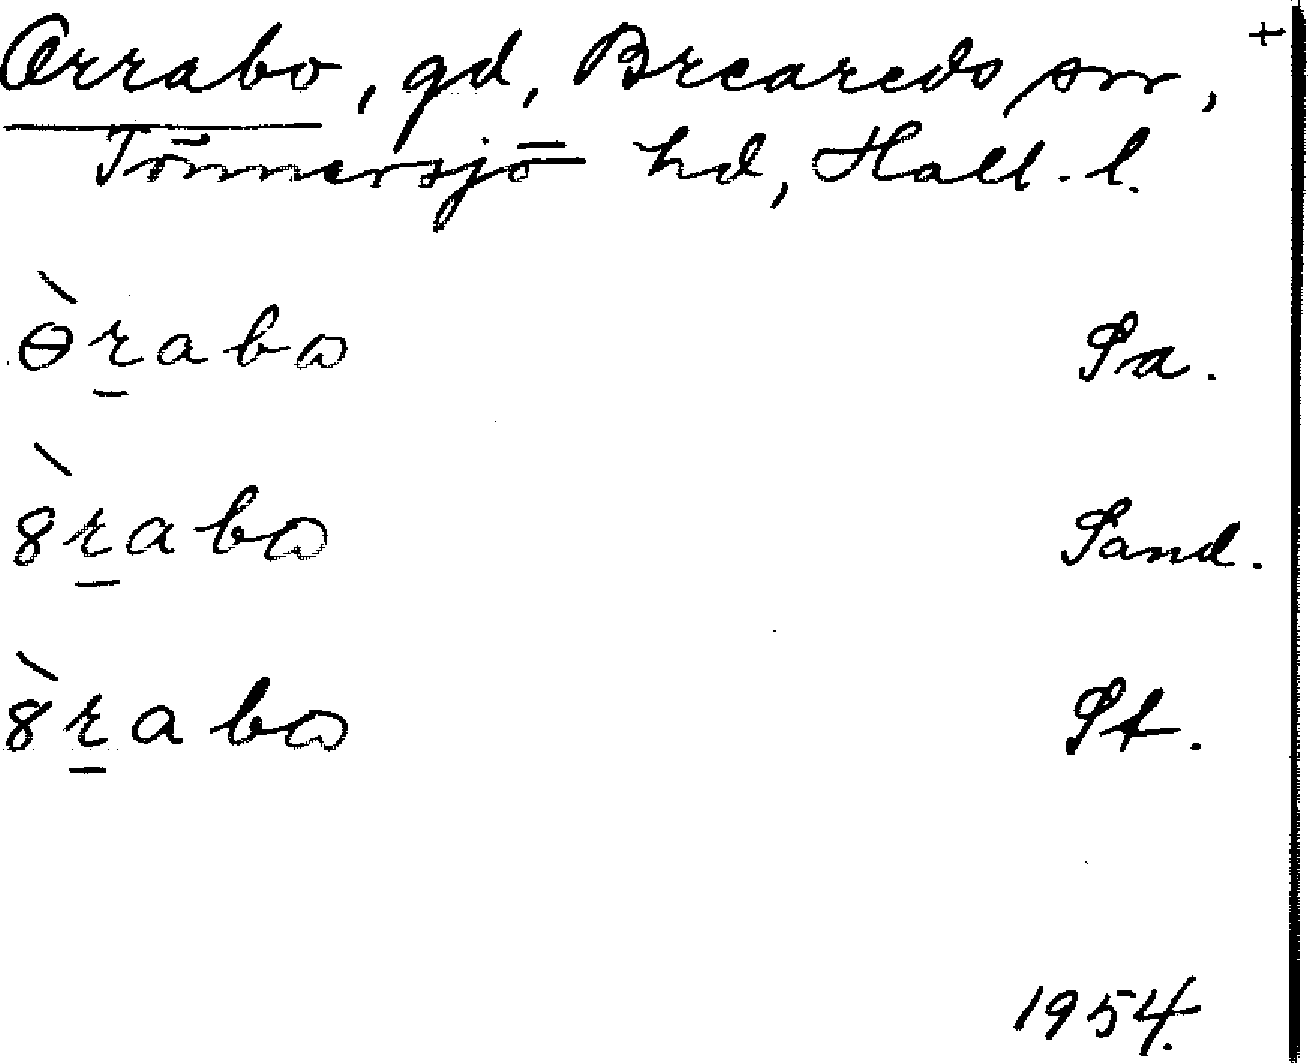 Orrabo, gd, Breareds sn, +
Tönnersjö hd, Hall. l.
ɵ̀r̠abɷ Sa.
8̀r̠abɷ Sand.
8̀r̠abɷ St.
1954.